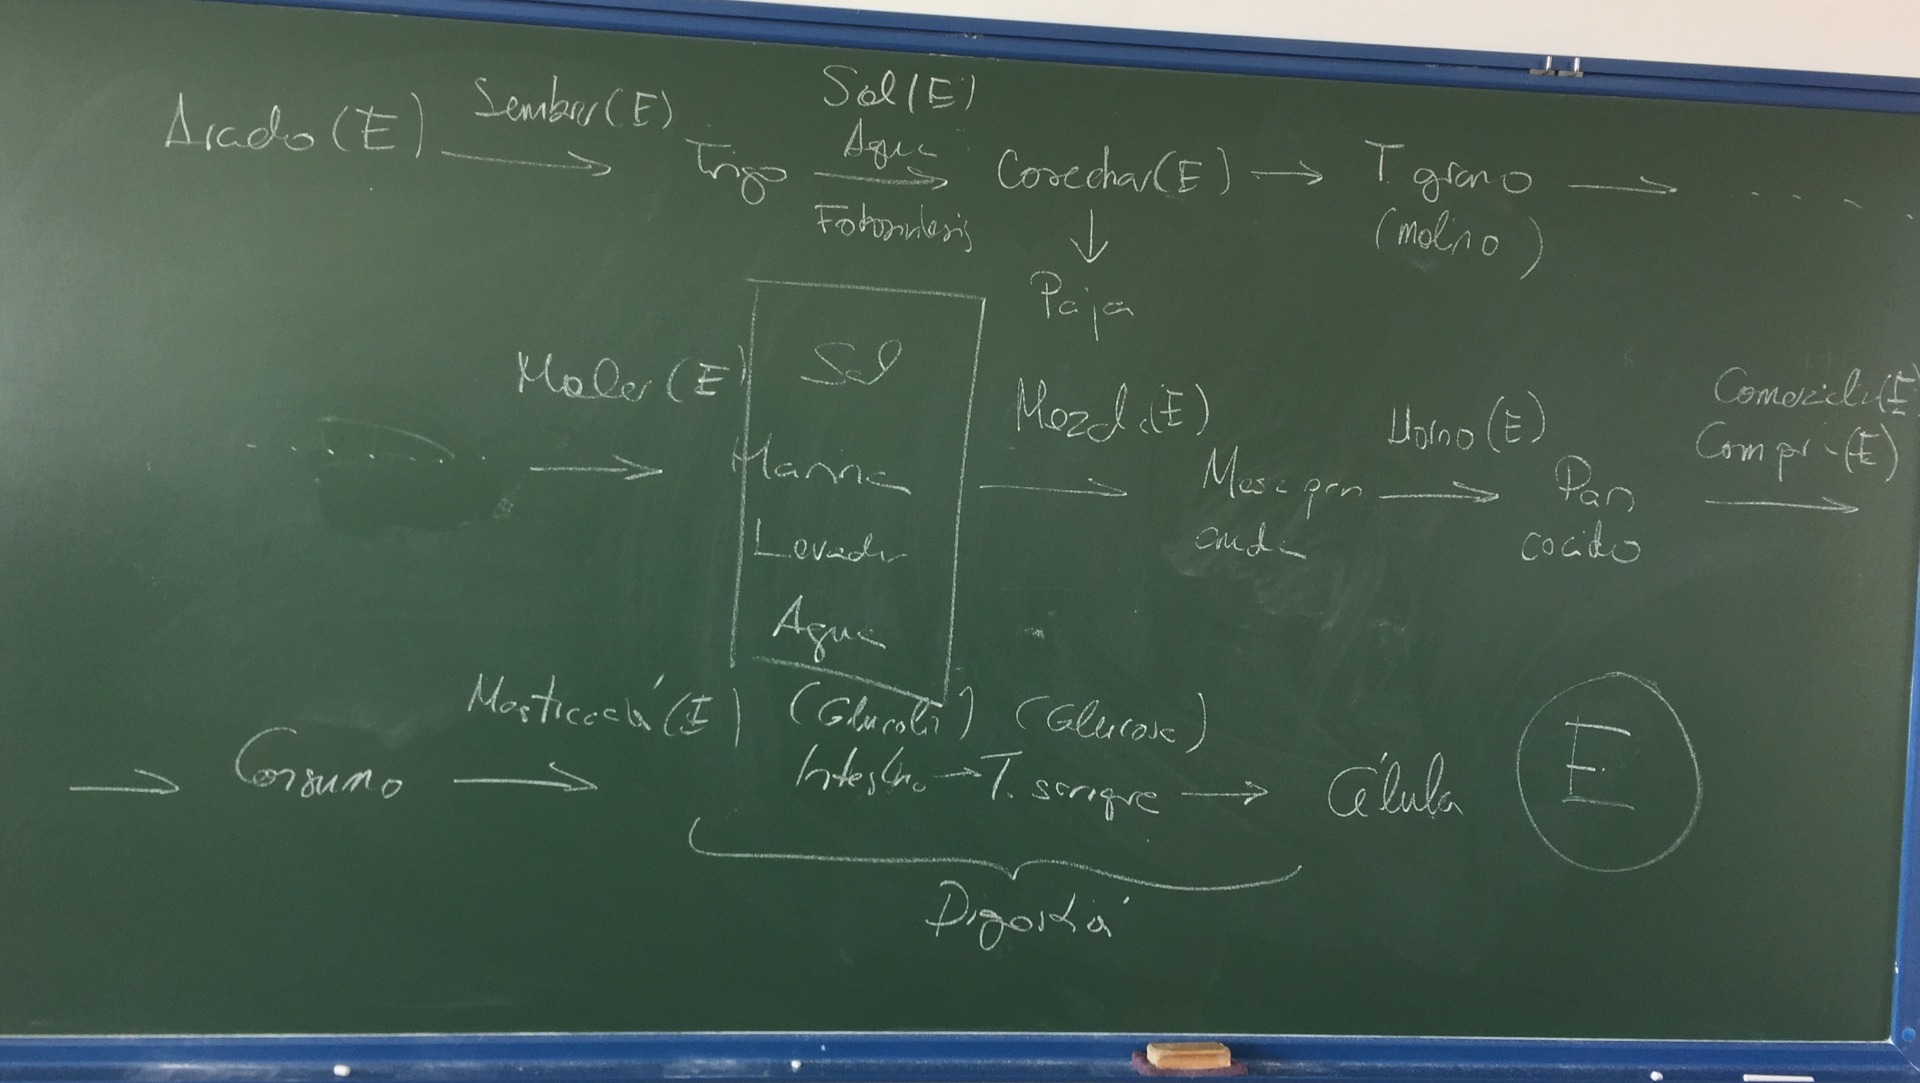 Arado (E) Sembrar (E) Trigo Sol (E) Agua Fotosíntesis Cosechar (E) → T. grano (molino) → . . . .
↓
Paja
. . . . . Moler (E) →
Sal
Harina
Levadur
Agua
Mezcl. (E) → Masa pan cruda Horno (E) → Pan cocido Comerciali (E) Compr (E) →
→ Consumo Masticación (E) → Intestino → T. sangre → Célula E
(Glucosa)
Digestión